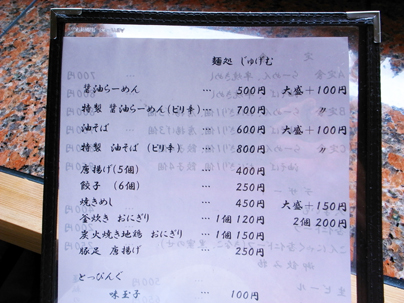 麺処 じゅげむ
醤油らーめん … 500円 大盛+100円
特製 醤油らーめん(ピリ辛) … 700円 〃
油そば … 600円 大盛+100円
特製 油そば (ピリ辛) … 800円 〃
唐揚げ(5個) … 400円
餃子 (6個) … 250円
焼きめし … 450円 大盛+150円
釜炊き おにぎり … 1個 120円 2個 200円
炭火焼き地鶏 おにぎり … 1個 150円
豚足 唐揚げ … 250円
とっぴんぐ
味玉子 … 100円